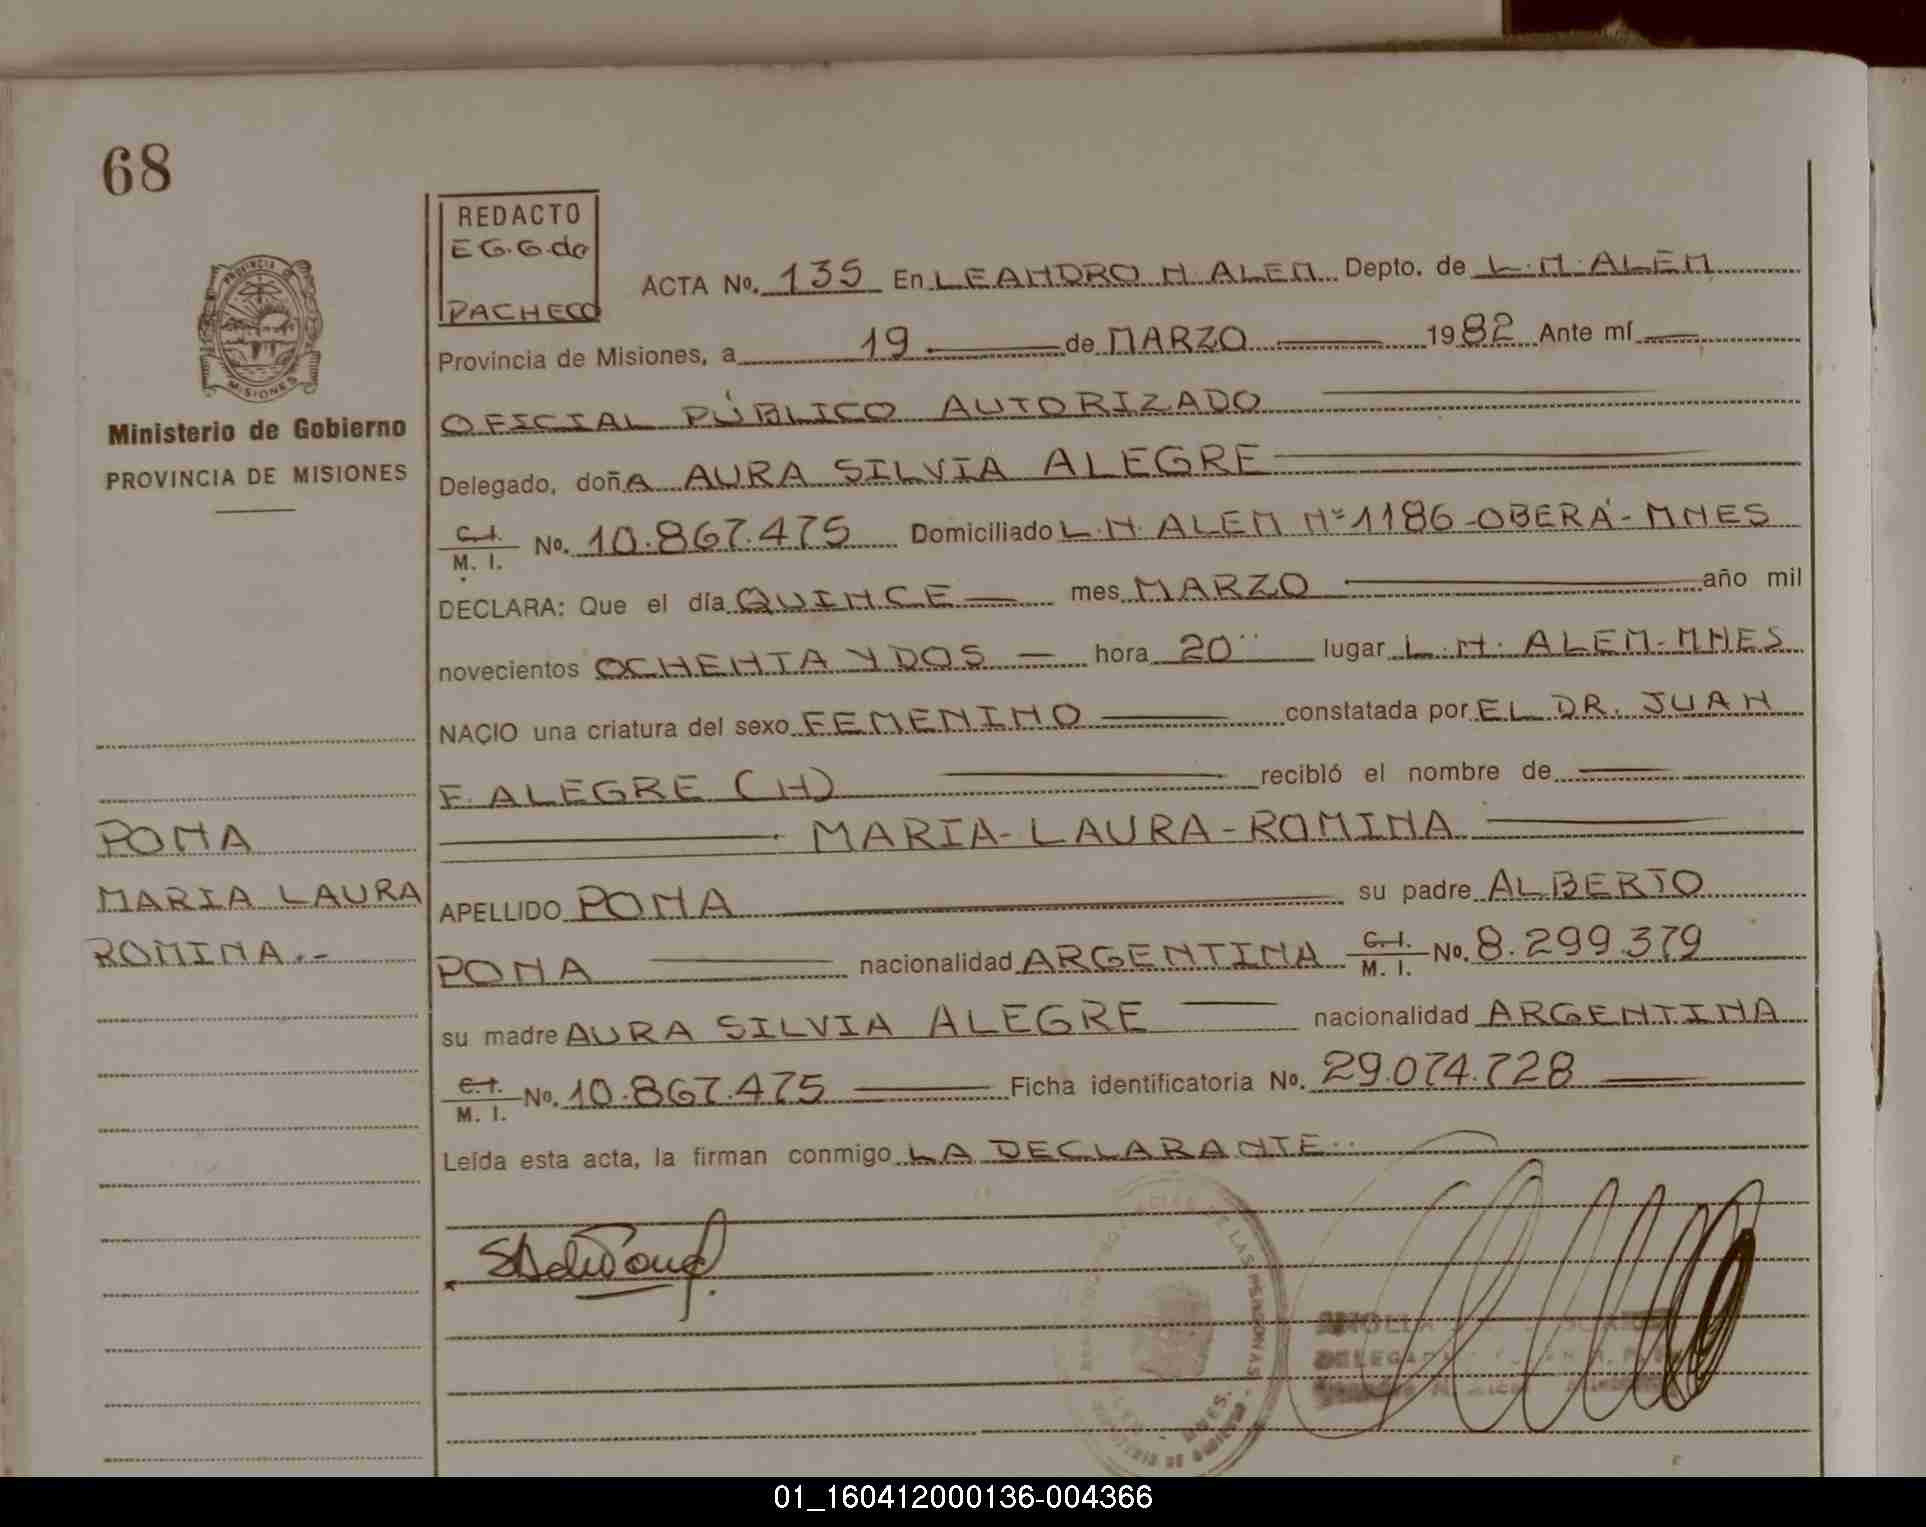 68
PROVINCIA DE MISIONES
Ministerio de Gobierno
PROVINCIA DE MISIONES
REDACTO
E G. G. de
PACHECO
ACTA No. 135 En LEANDRO N. ALEM Depto. de L. N. ALEM
Provincia de Misiones, a 19 de MARZO 1982 Ante mí
OFICIAL PÚBLICO AUTORIZADO
Delegado, doñA AURA SILVIA ALEGRE
C. I. M. I. No. 10.867.475 Domiciliado L. N. ALEM Nº 1186 - OBERÁ - MNES
DECLARA: Que el día QUINCE mes MARZO año mil
novecientos OCHENTA Y DOS hora 20 lugar L. N. ALEM - MNES
NACIO una criatura del sexo FEMENINO constatada por EL DR. JUAN
F. ALEGRE (H) recibió el nombre de
MARIA - LAURA - ROMINA
APELLIDO PONA su padre ALBERTO
PONA nacionalidad ARGENTINA C. I. M. I. No. 8.299.379
su madre AURA SILVIA ALEGRE nacionalidad ARGENTINA
C. I. M. I. No. 10.867.475 Ficha identificatoria No. 29.074.728
Leída esta acta, la firman conmigo LA DECLARANTE
PONA
MARIA LAURA
ROMINA.-
01_160412000136-004366